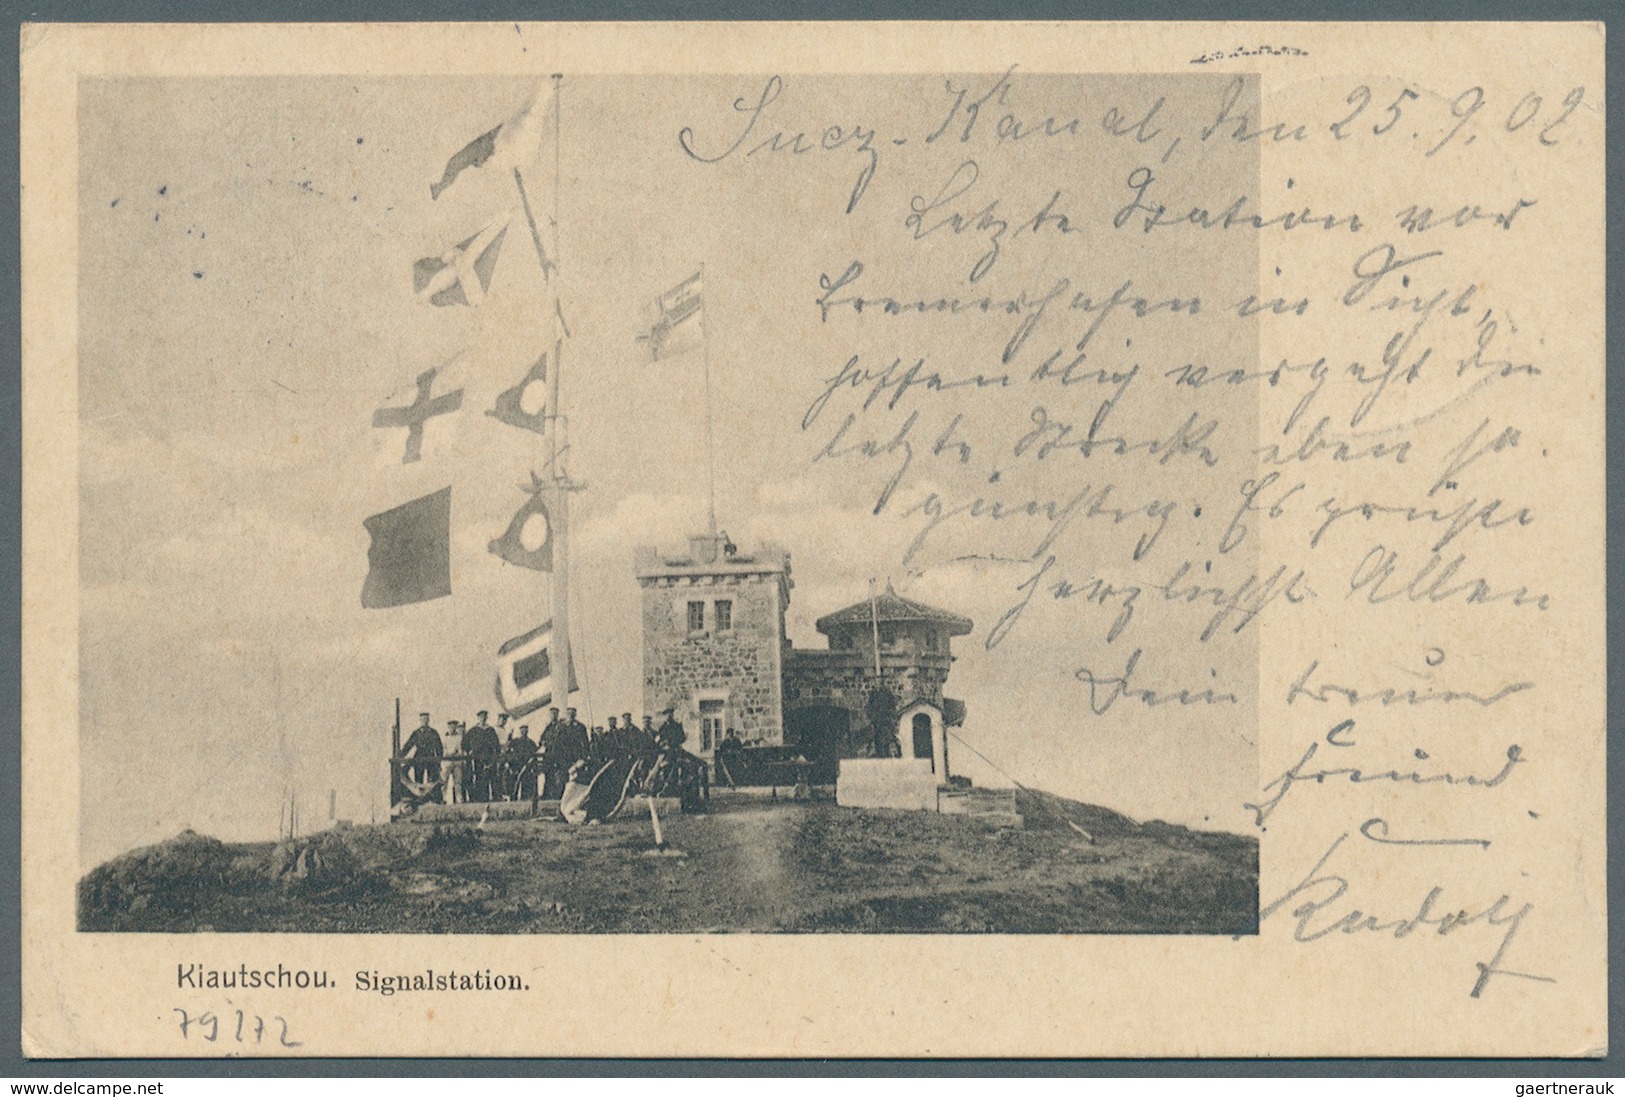 Suez-Kanal, den 25.9.02
Letzte Station vor
Bremerhafen in Sicht,
hoffentlich vergeht die
letzte Strecke eben so
günstig. Es grüßt
herzlichst Allen
Dein treuer
Freund
Rudolf
Kiautschou. Signalstation.
79/72
www.delcampe.net
gaertnerauk